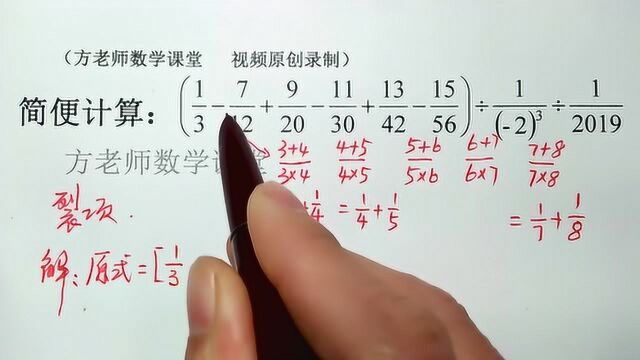 （方老师数学课堂 视频原创录制）
简便计算：(1/3 - 7/12 + 9/20 - 11/30 + 13/42 - 15/56) ÷ 1/(-2)³ ÷ 1/2019
方老师数学课
3+4/3×4 4+5/4×5 5+6/5×6 6+7/6×7 7+8/7×8
裂项. + 1/4 = 1/4 + 1/5 = 1/7 + 1/8
解：原式 = [1/3